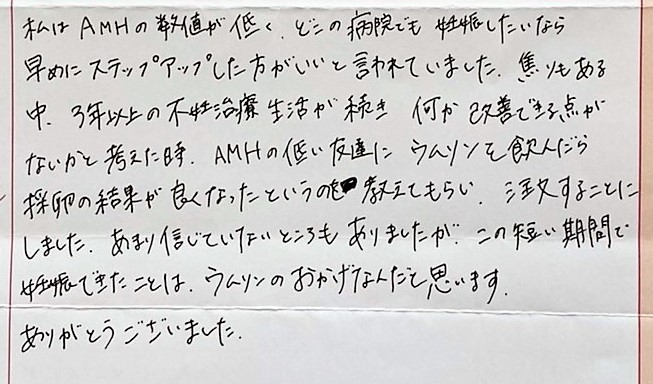 私はAMHの数値が低く、どこの病院でも妊娠したいなら
早めにステップアップした方がいいと言われていました。焦りもある
中、3年以上の不妊治療生活が続き 何か改善できる点が
ないかと考えた時、AMHの低い友達にウムリンを飲んだら
採卵の結果が良くなったというのを教えてもらい、注文することに
しました。あまり信じていないところもありましたが、この短い期間で
妊娠できたことは、ウムリンのおかげなんだと思います。
ありがとうございました。